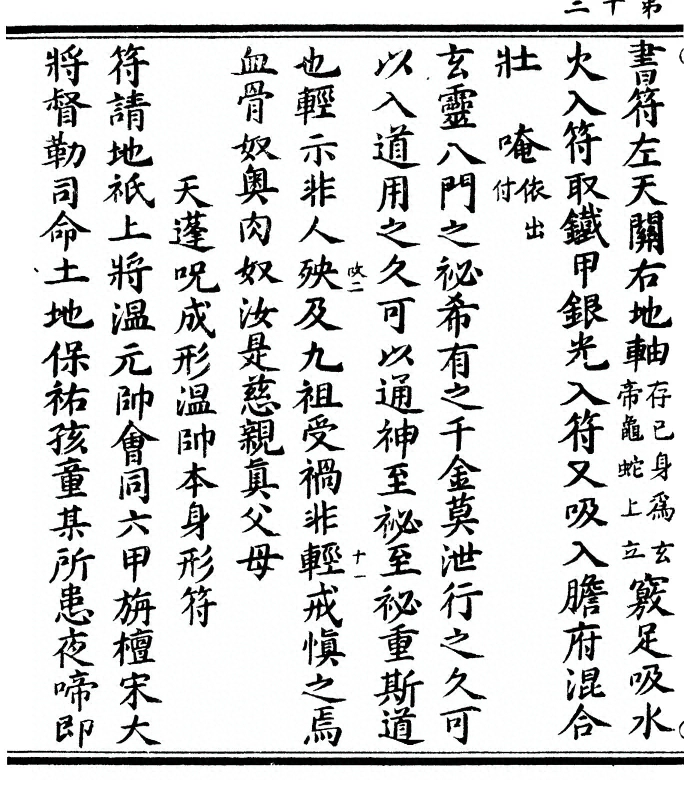 第十二
書符左天關右地軸存已身爲玄帝龜蛇上立竅足吸水
火入符取鐵甲銀光入符又吸入膽府混合
壯　唵依出付
玄靈八門之祕希有之千金莫泄行之久可
以入道用之久可以通神至祕至祕重斯道
也輕示非人殃及九祖受禍非輕戒慎之焉
改二
十一
血骨奴奧肉奴汝是慈親眞父母
天蓬呪成形溫帥本身形符
符請地祇上將溫元帥會同六甲旃檀宋大
將督勒司命土地保祐孩童某所患夜啼即